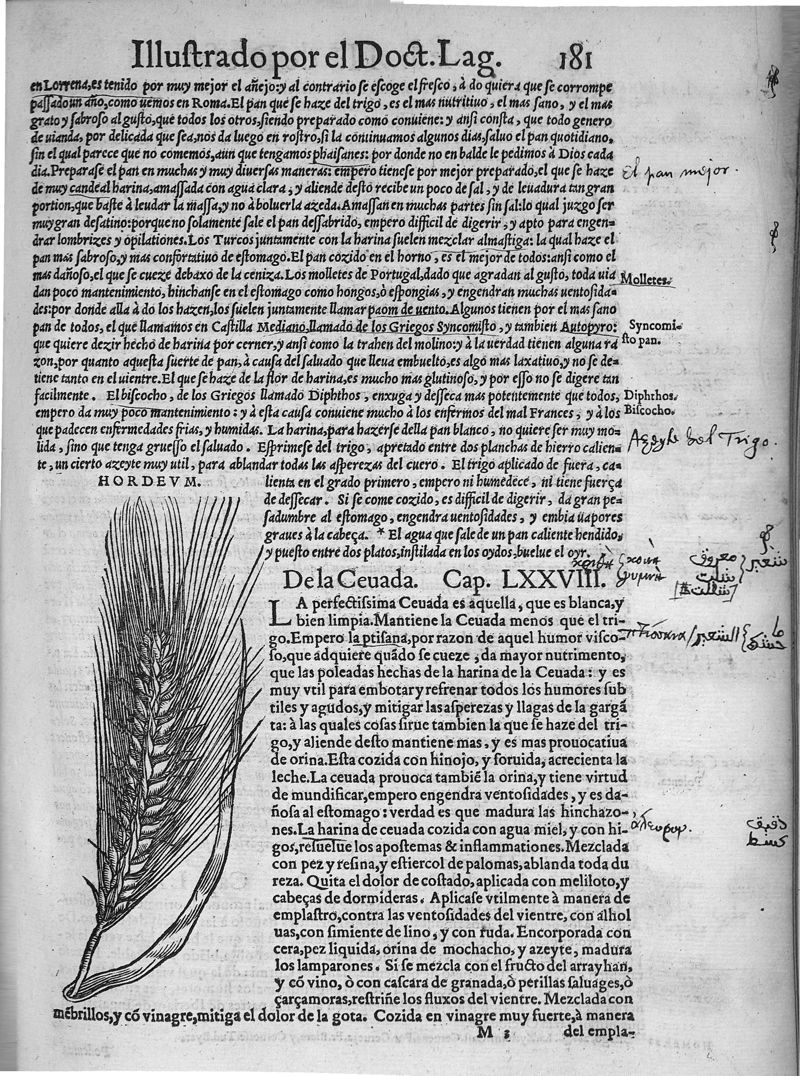 Illustrado por el Doct. Lag. 181
en Lorrena, es tenido por muy mejor el añejo: y al contrario se escoge el fresco, à do quiera que se corrompe
passado un año, como uemos en Roma. El pan que se haze del trigo, es el mas nutritiuo, el mas sano, y el mas
grato y sabroso al gusto, que todos los otros, siendo preparado como conuiene: y ansi consta, que todo genero
de uianda, por delicada que sea, nos da luego en rostro, si la continuamos algunos dias, saluo el pan quotidiano,
sin el qual parece que no comemos, aun que tengamos phaisanes: por donde no en balde le pedimos à Dios cada
dia. Preparase el pan en muchas y muy diuersas maneras: empero tienese por mejor preparado, el que se haze
El pan mejor.
de muy candeal harina, amassada con agua clara, y aliende desto recibe un poco de sal, y de leuadura tan gran
portion, que baste à leudar la massa, y no à boluerla azeda. Amassan en muchas partes sin sal: lo qual juzgo ser
muy gran desatino: porque no solamente sale el pan dessabrido, empero difficil de digerir, y apto para engen-
drar lombrizes y opilationes. Los Turcos juntamente con la harina suelen mezclar almastiga: la qual haze el
pan mas sabroso, y mas confortatiuo de estomago. El pan cozido en el horno, es el mejor de todos: ansi como el
mas dañoso, el que se cueze debaxo de la ceniza. Los molletes de Portugal, dado que agradan al gusto, toda uia
Molletes.
dan poco mantenimiento, hinchanse en el estomago como hongos, ò espongias, y engendran muchas uentosida-
des: por donde alla à do los hazen, los suelen juntamente llamar paom de uento. Algunos tienen por el mas sano
pan de todos, el que llamamos en Castilla Mediano, llamado de los Griegos Syncomisto, y tambien Autopyro:
Syncomi-
sto pan.
que quiere dezir hecho de harina por cerner, y ansi como la trahen del molino: y à la verdad tienen alguna ra
zon, por quanto aquesta suerte de pan, à causa del saluado que lleua embuelto, es algo mas laxatiuo, y no se de-
tiene tanto en el uientre. El que se haze de la flor de harina, es mucho mas glutinoso, y por esso no se digere tan
facilmente. El biscocho, de los Griegos llamado Diphthos, enxuga y desseca mas potentemente que todos,
Diphthos.
Biscocho.
empero da muy poco mantenimiento: y à esta causa conuiene mucho à los enfermos del mal Frances, y à los
que padecen enfermedades frias, y humidas. La harina, para hazerse della pan blanco, no quiere ser muy mo-
lida, sino que tenga gruesso el saluado. Esprimese del trigo, apretado entre dos planchas de hierro calien-
Azeyte del Trigo.
te, un cierto azeyte muy util, para ablandar todas las asperezas del cuero. El trigo aplicado de fuera, ca-
HORDEVM.
lienta en el grado primero, empero ni humedece, ni tiene fuerça
de dessecar. Si se come cozido, es difficil de digerir, da gran pe-
sadumbre al estomago, engendra uentosidades, y embia uapores
graues à la cabeça. * El agua que sale de un pan caliente hendido,
y puesto entre dos platos, instilada en los oydos, buelue el oyr.
De la Ceuada. Cap. LXXVIII.
شعير { معروف
سلت
LA perfectissima Ceuada es aquella, que es blanca, y
bien limpia. Mantiene la Ceuada menos que el tri-
go. Empero la ptisana, por razon de aquel humor visco-
πτισσανα / الشعير
so, que adquiere quãdo se cueze, da mayor nutrimento,
que las poleadas hechas de la harina de la Ceuada: y es
muy vtil para embotar y refrenar todos los humores sub
tiles y agudos, y mitigar las asperezas y llagas de la gargã
ta: à las quales cosas sirue tambien la que se haze del tri-
go, y aliende desto mantiene mas, y es mas prouocatiua
de orina. Esta cozida con hinojo, y soruida, acrecienta la
leche. La ceuada prouoca tambiẽ la orina, y tiene virtud
de mundificar, empero engendra ventosidades, y es da-
ñosa al estomago: verdad es que madura las hinchazo-
nes. La harina de ceuada cozida con agua miel, y con hi-
αλευρον.
دقيق
gos, resuelue los apostemas & inflammationes. Mezclada
con pez y resina, y estiercol de palomas, ablanda toda du
reza. Quita el dolor de costado, aplicada con meliloto, y
cabeças de dormideras. Aplicase vtilmente à manera de
emplastro, contra las ventosidades del vientre, con alhol
uas, con simiente de lino, y con ruda. Encorporada con
cera, pez liquida, orina de mochacho, y azeyte, madura
los lamparones. Si se mezcla con el fructo del arrayhan,
y cõ vino, ò con cascara de granada, ò perillas saluages, ò
çarçamoras, restriñe los fluxos del vientre. Mezclada con
mẽbrillos, y cõ vinagre, mitiga el dolor de la gota. Cozida en vinagre muy fuerte, à manera
M 3 del empla-